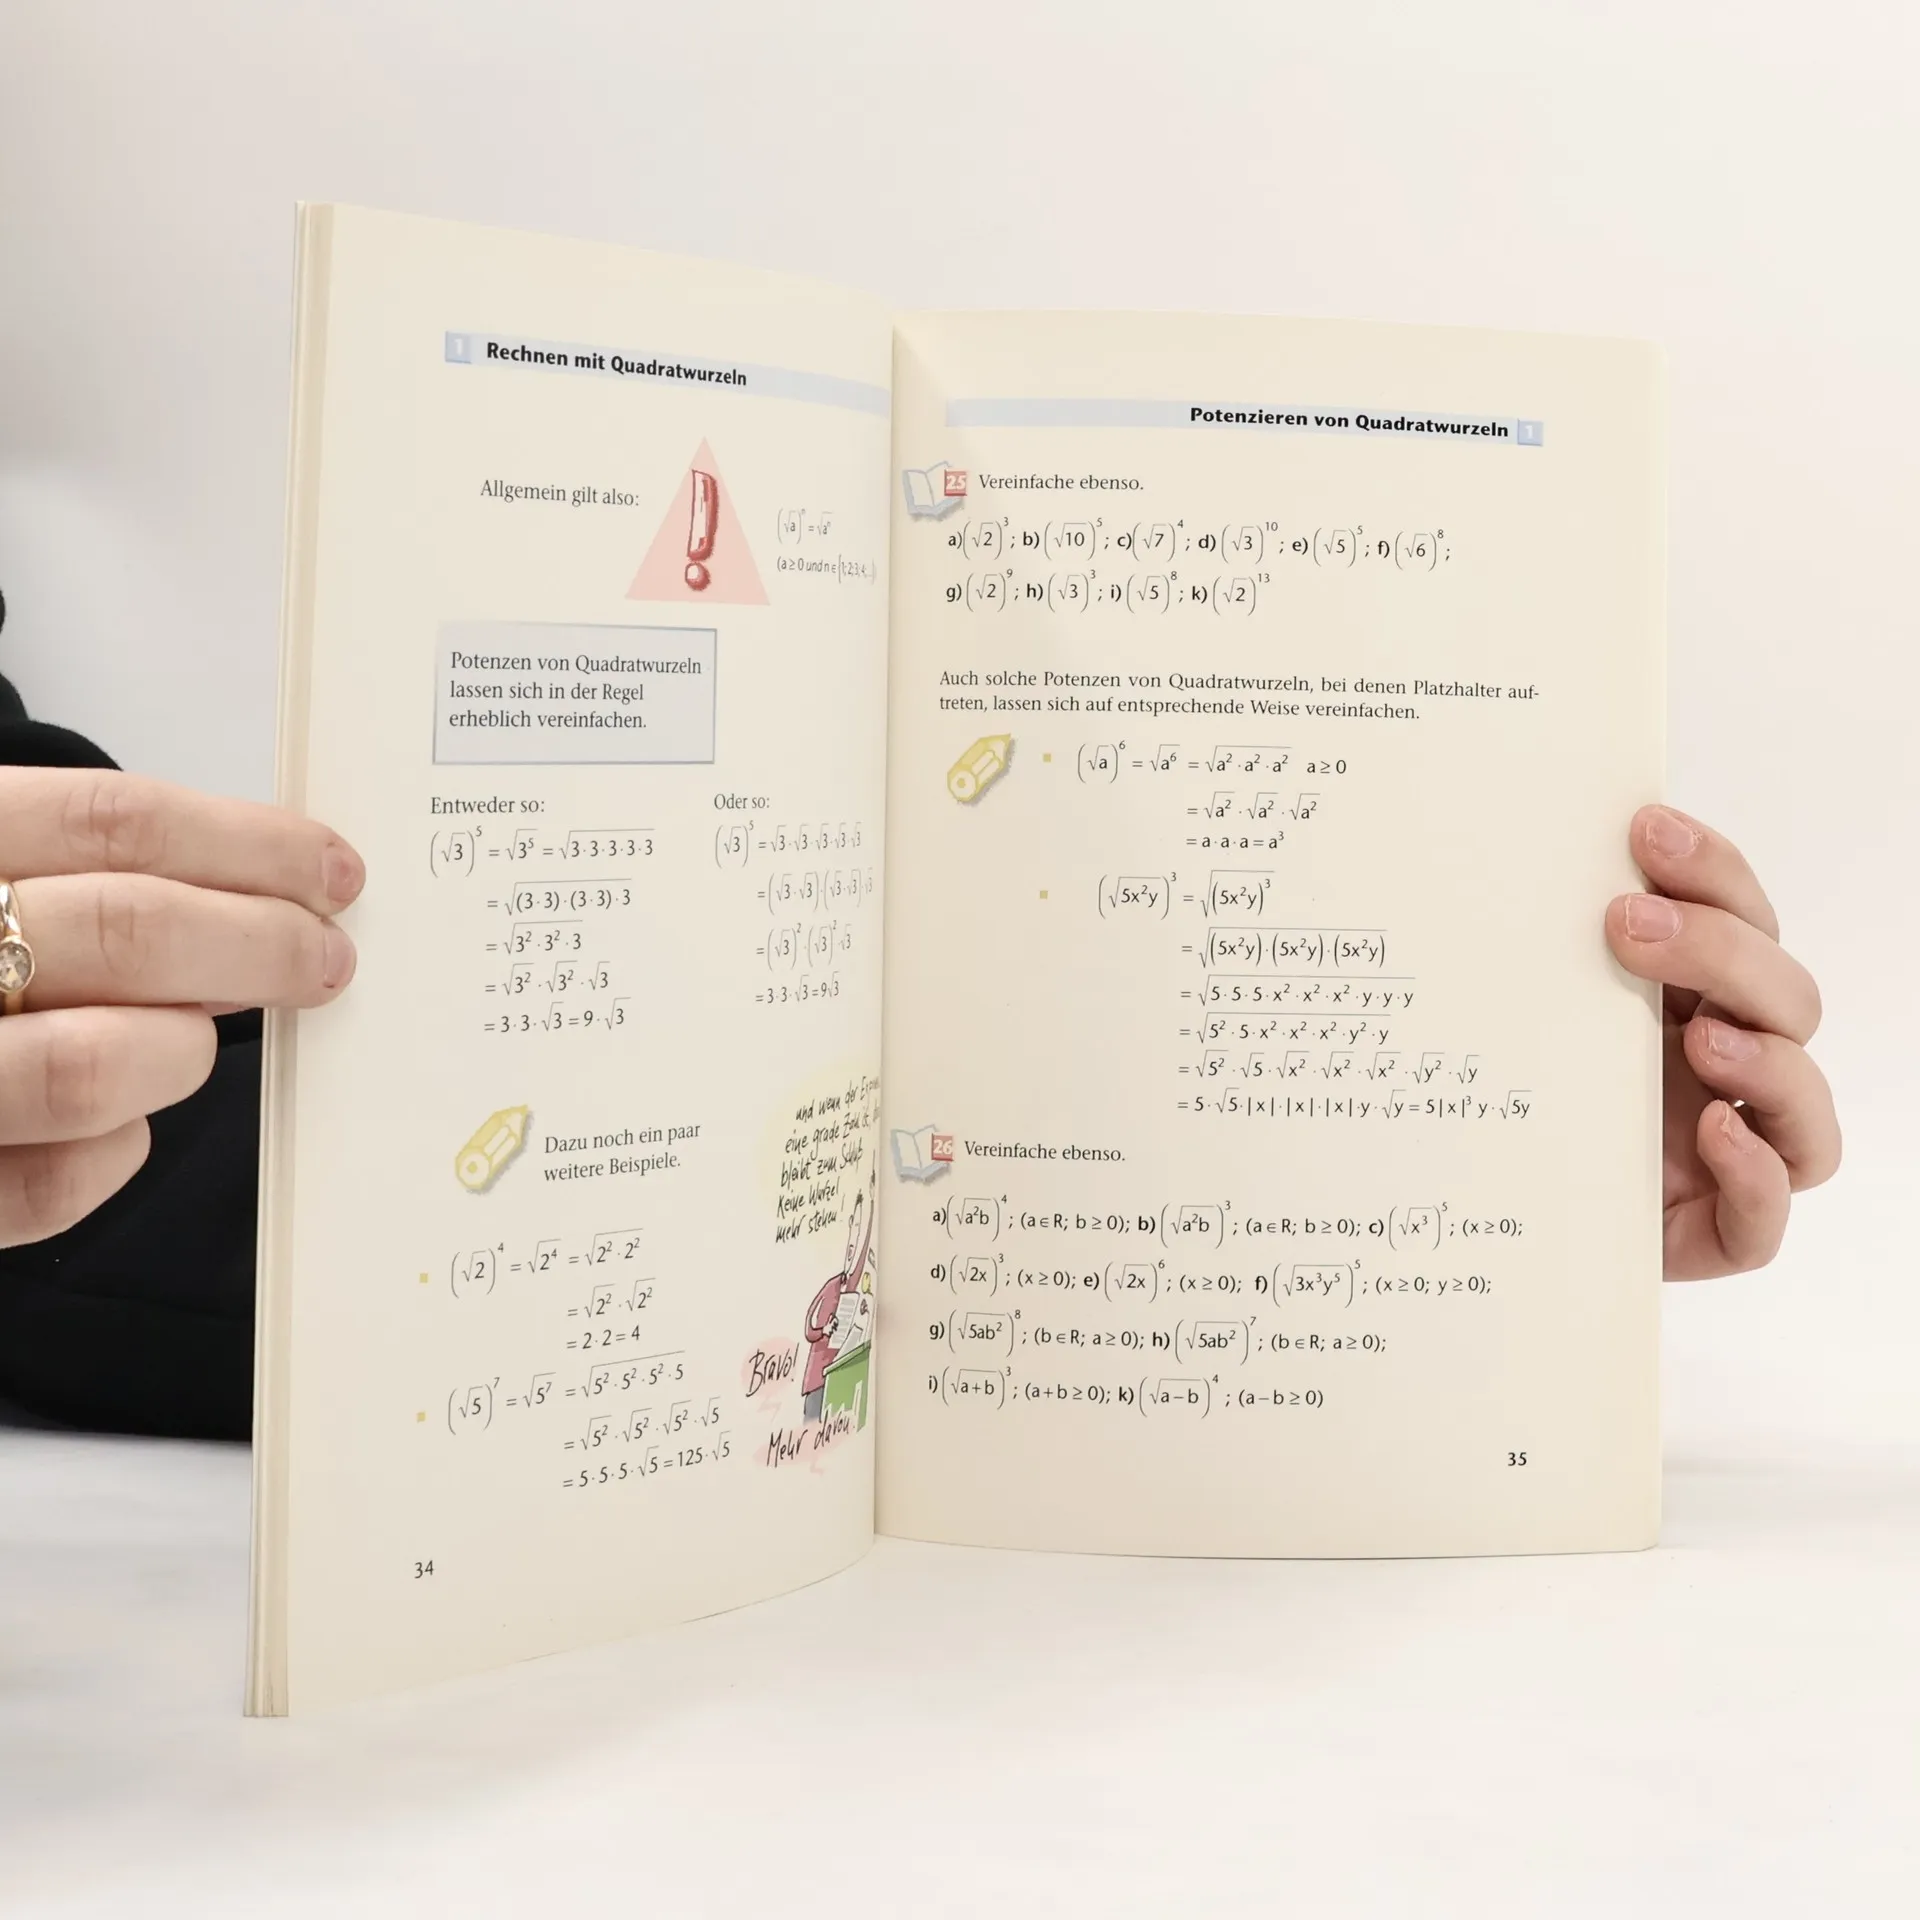 1 Rechnen mit Quadratwurzeln
Allgemein gilt also:
(√a)ⁿ = √aⁿ
(a ≥ 0 und n ∈ {1; 2; 3; 4; ...}
Potenzen von Quadratwurzeln
lassen sich in der Regel
erheblich vereinfachen.
Entweder so:
(√3)⁵ = √3⁵ = √(3·3·3·3·3)
= √((3·3)·(3·3)·3)
= √(3²·3²·3)
= √3² · √3² · √3
= 3·3·√3 = 9·√3
Oder so:
(√3)⁵ = √3·√3·√3·√3·√3
= (√3·√3)·(√3·√3)·√3
= (√3)²·(√3)²·√3
= 3·3·√3 = 9√3
Dazu noch ein paar
weitere Beispiele.
(√2)⁴ = √2⁴ = √(2²·2²)
= √2² · √2²
= 2·2 = 4
(√5)⁷ = √5⁷ = √(5²·5²·5²·5)
= √5² · √5² · √5² · √5
= 5·5·5·√5 = 125·√5
und wenn der
eine grade Zahl ist,
bleibt zum Schluß
Keine Wurzel
mehr stehen!
Bravo!
Mehr davon!
34
Potenzieren von Quadratwurzeln 1
25 Vereinfache ebenso.
a) (√2)³; b) (√10)⁵; c) (√7)⁴; d) (√3)¹⁰; e) (√5)⁵; f) (√6)⁸;
g) (√2)⁹; h) (√3)³; i) (√5)⁸; k) (√2)¹³
Auch solche Potenzen von Quadratwurzeln, bei denen Platzhalter auf-
treten, lassen sich auf entsprechende Weise vereinfachen.
(√a)⁶ = √a⁶ = √(a²·a²·a²) a ≥ 0
= √a² · √a² · √a²
= a·a·a = a³
(√(5x²y))³ = √((5x²y)³)
= √((5x²y)·(5x²y)·(5x²y))
= √(5·5·5·x²·x²·x²·y·y·y)
= √(5²·5·x²·x²·x²·y²·y)
= √5² · √5 · √x² · √x² · √x² · √y² · √y
= 5·√5·|x|·|x|·|x|·y·√y = 5|x|³ y·√(5y)
26 Vereinfache ebenso.
a) (√(a²b))⁴; (a ∈ R; b ≥ 0); b) (√(a²b))³; (a ∈ R; b ≥ 0); c) (√x³)⁵; (x ≥ 0);
d) (√(2x))³; (x ≥ 0); e) (√(2x))⁶; (x ≥ 0); f) (√(3x³y⁵))⁵; (x ≥ 0; y ≥ 0);
g) (√(5ab²))⁸; (b ∈ R; a ≥ 0); h) (√(5ab²))⁷; (b ∈ R; a ≥ 0);
i) (√(a+b))³; (a+b ≥ 0); k) (√(a−b))⁴; (a−b ≥ 0)
35